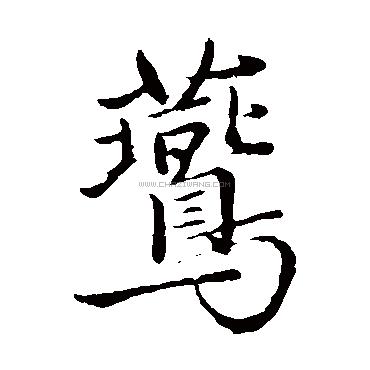 鷰
WWW.CHAZIWANG.COM